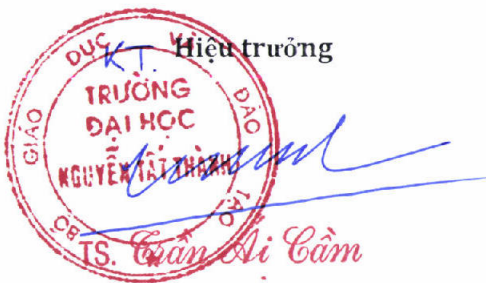 KT. Hiệu trưởng
BỘ GIÁO DỤC VÀ ĐÀO TẠO
TRƯỜNG
ĐẠI HỌC
NGUYỄN TẤT THÀNH
TS. Trần Ái Cầm